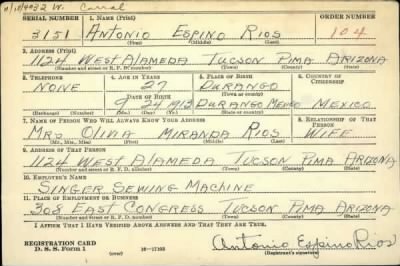 W. Corral
SERIAL NUMBER 1. NAME (Print) ORDER NUMBER
3151 ANTONIO ESPINO RIOS 104
(First) (Middle) (Last)
2. ADDRESS (Print)
1124 WEST ALAMEDA TUCSON PIMA ARIZONA
(Number and street or R. F. D. number) (Town) (County) (State)
3. TELEPHONE 4. AGE IN YEARS 5. PLACE OF BIRTH 6. COUNTRY OF CITIZENSHIP
NONE 27 DURANGO
(Town or county)
DATE OF BIRTH
9 24 1912 DURANGO MEXICO MEXICO
(Exchange) (Number) (Mo.) (Day) (Yr.) (State or country)
7. NAME OF PERSON WHO WILL ALWAYS KNOW YOUR ADDRESS 8. RELATIONSHIP OF THAT PERSON
MRS OLIVIA MIRANDA RIOS WIFE
(Mr., Mrs., Miss) (First) (Middle) (Last)
9. ADDRESS OF THAT PERSON
1124 WEST ALAMEDA TUCSON PIMA ARIZONA
(Number and street or R. F. D. number) (Town) (County) (State)
10. EMPLOYER'S NAME
SINGER SEWING MACHINE
11. PLACE OF EMPLOYMENT OR BUSINESS
308 EAST CONGRESS TUCSON PIMA ARIZONA
(Number and street or R. F. D. number) (Town) (County) (State)
I AFFIRM THAT I HAVE VERIFIED ABOVE ANSWERS AND THAT THEY ARE TRUE.
REGISTRATION CARD
D. S. S. Form 1 16—17105 Antonio Espino Rios
(Registrant's signature)